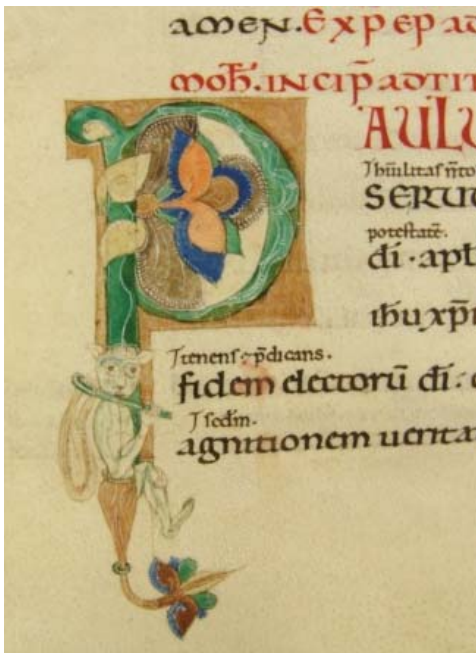 amen. Exp̄ ep̄ ad
moh̄. incip̄ ad tit
PAULU
.i. humilitas n̄to
seruu
potestatē.
d̄i · apt̄
ihu xp̄i
.i. tenens & p̄dicans.
fidem electorū d̄i ·
.i. scd̄m.
agnitionem uerita